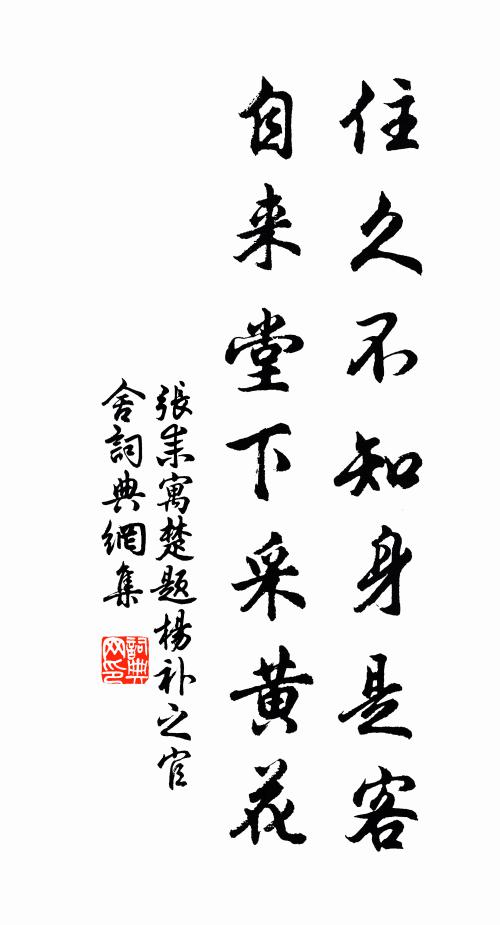 住久不知身是客
自来堂下采黄花
張耒寓楚題楊补之官
舍詞典網集
詞典
网印